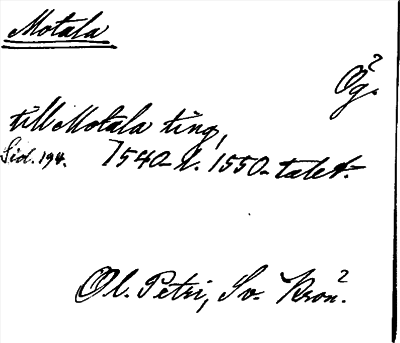 Motala
Ög.²
till Motala ting,
Sid. 194. 1540- l. 1550-talet.
Ol. Petri, Sv. Krön².